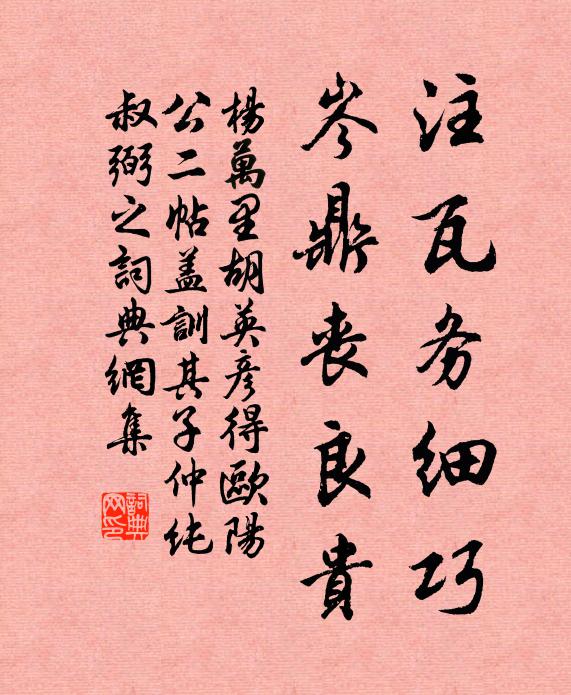 注瓦务细巧
岑鼎丧良貴
楊萬里胡英彦得歐陽
公二帖盖訓其子仲纯
叔弼之詞典網集
詞典
网印